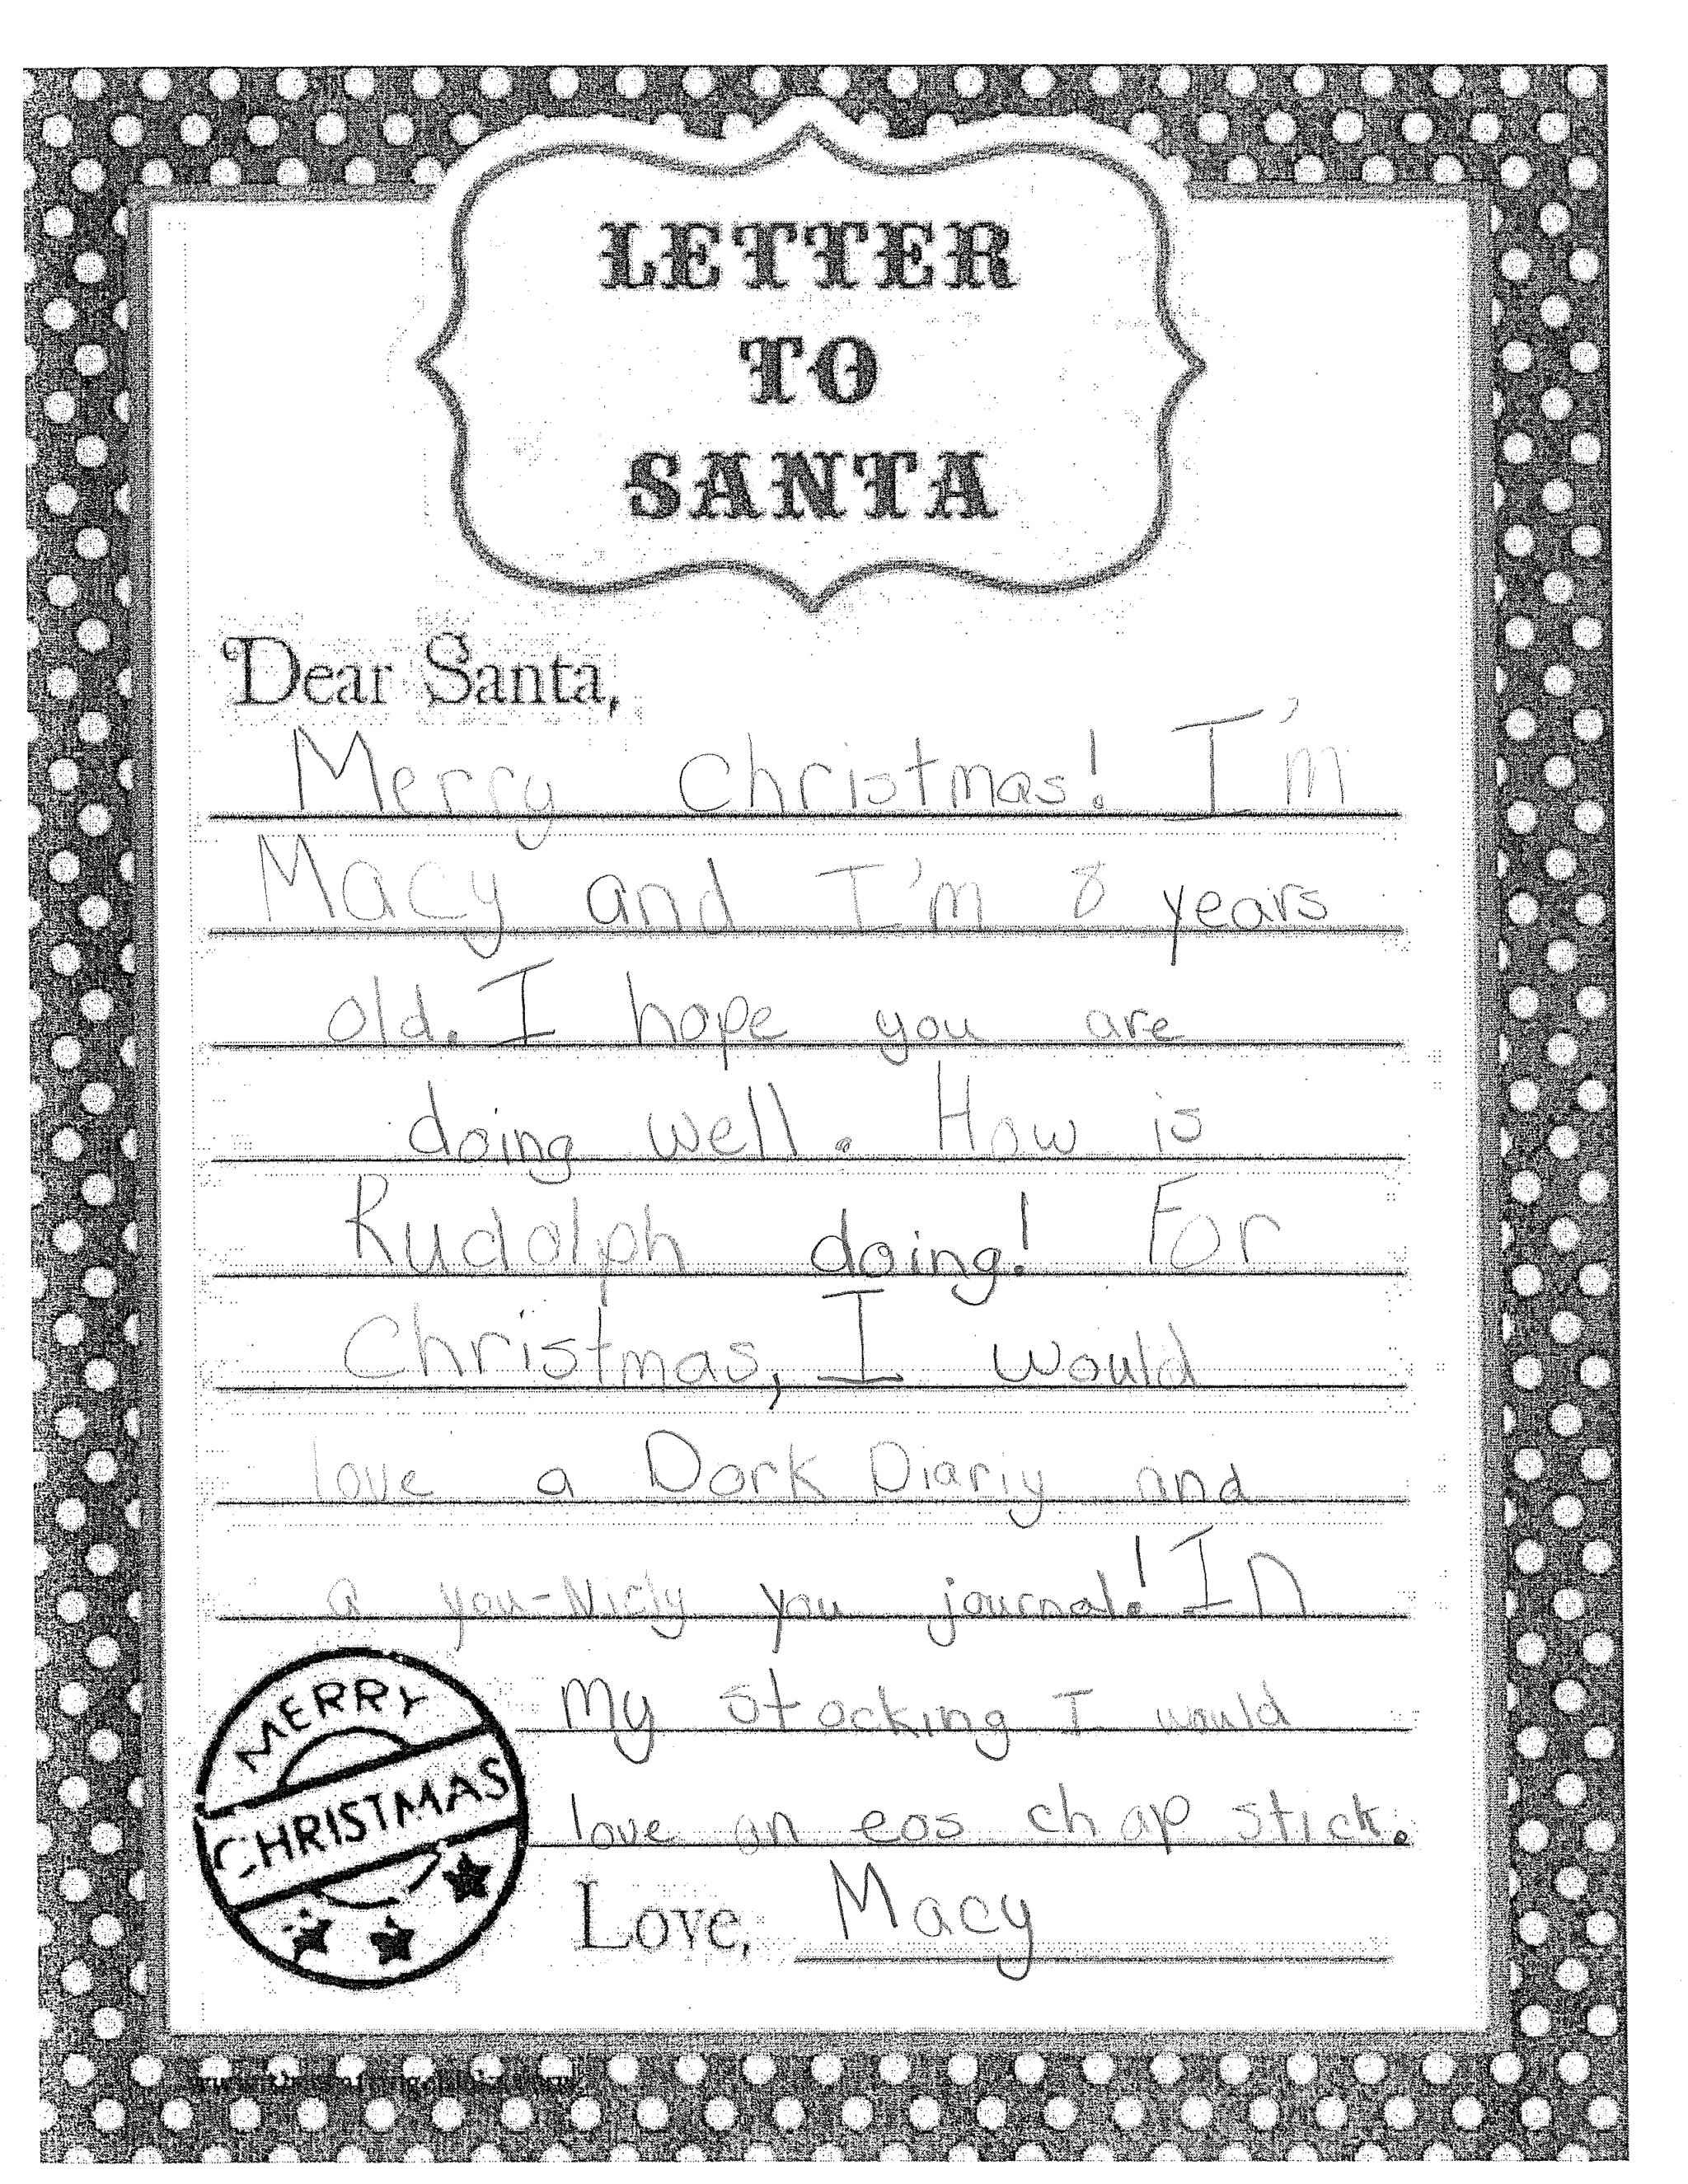 LETTER
TO
SANTA
Dear Santa,
Merry Christmas! I'm
Macy and I'm 8 years
old. I hope you are
doing well. How is
Rudolph doing! For
Christmas, I would
love a Dork Diariy and
a you-Nicly you journal! In
my stocking I would
love an eos chap stick.
Love, Macy
MERRY
CHRISTMAS